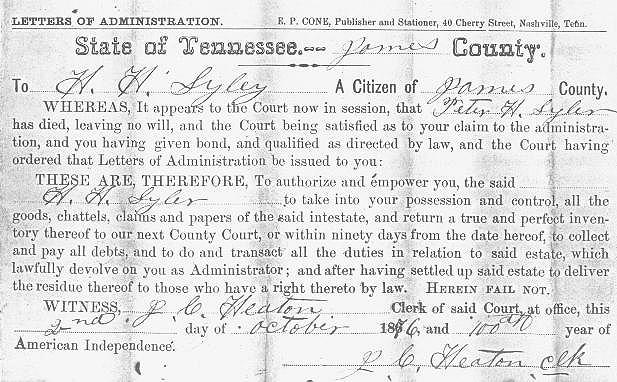 LETTERS OF ADMINISTRATION. E. P. CONE, Publisher and Stationer, 40 Cherry Street, Nashville, Tenn.
State of Tennessee.-- James County.
To H. H. Syler A Citizen of James County.
WHEREAS, It appears to the Court now in session, that Peter H. Syler
has died, leaving no will, and the Court being satisfied as to your claim to the administra-
tion, and you having given bond, and qualified as directed by law, and the Court having
ordered that Letters of Administration be issued to you:
THESE ARE, THEREFORE, To authorize and empower you, the said
H. H. Syler to take into your possession and control, all the
goods, chattels, claims and papers of the said intestate, and return a true and perfect inven-
tory thereof to our next County Court, or within ninety days from the date hereof, to collect
and pay all debts, and to do and transact all the duties in relation to said estate, which
lawfully devolve on you as Administrator; and after having settled up said estate to deliver
the residue thereof to those who have a right thereto by law. HEREIN FAIL NOT.
WITNESS, J. C. Heaton Clerk of said Court, at office, this
2nd. day of October 1876, and 100th year of
American Independence.
J C. Heaton clk